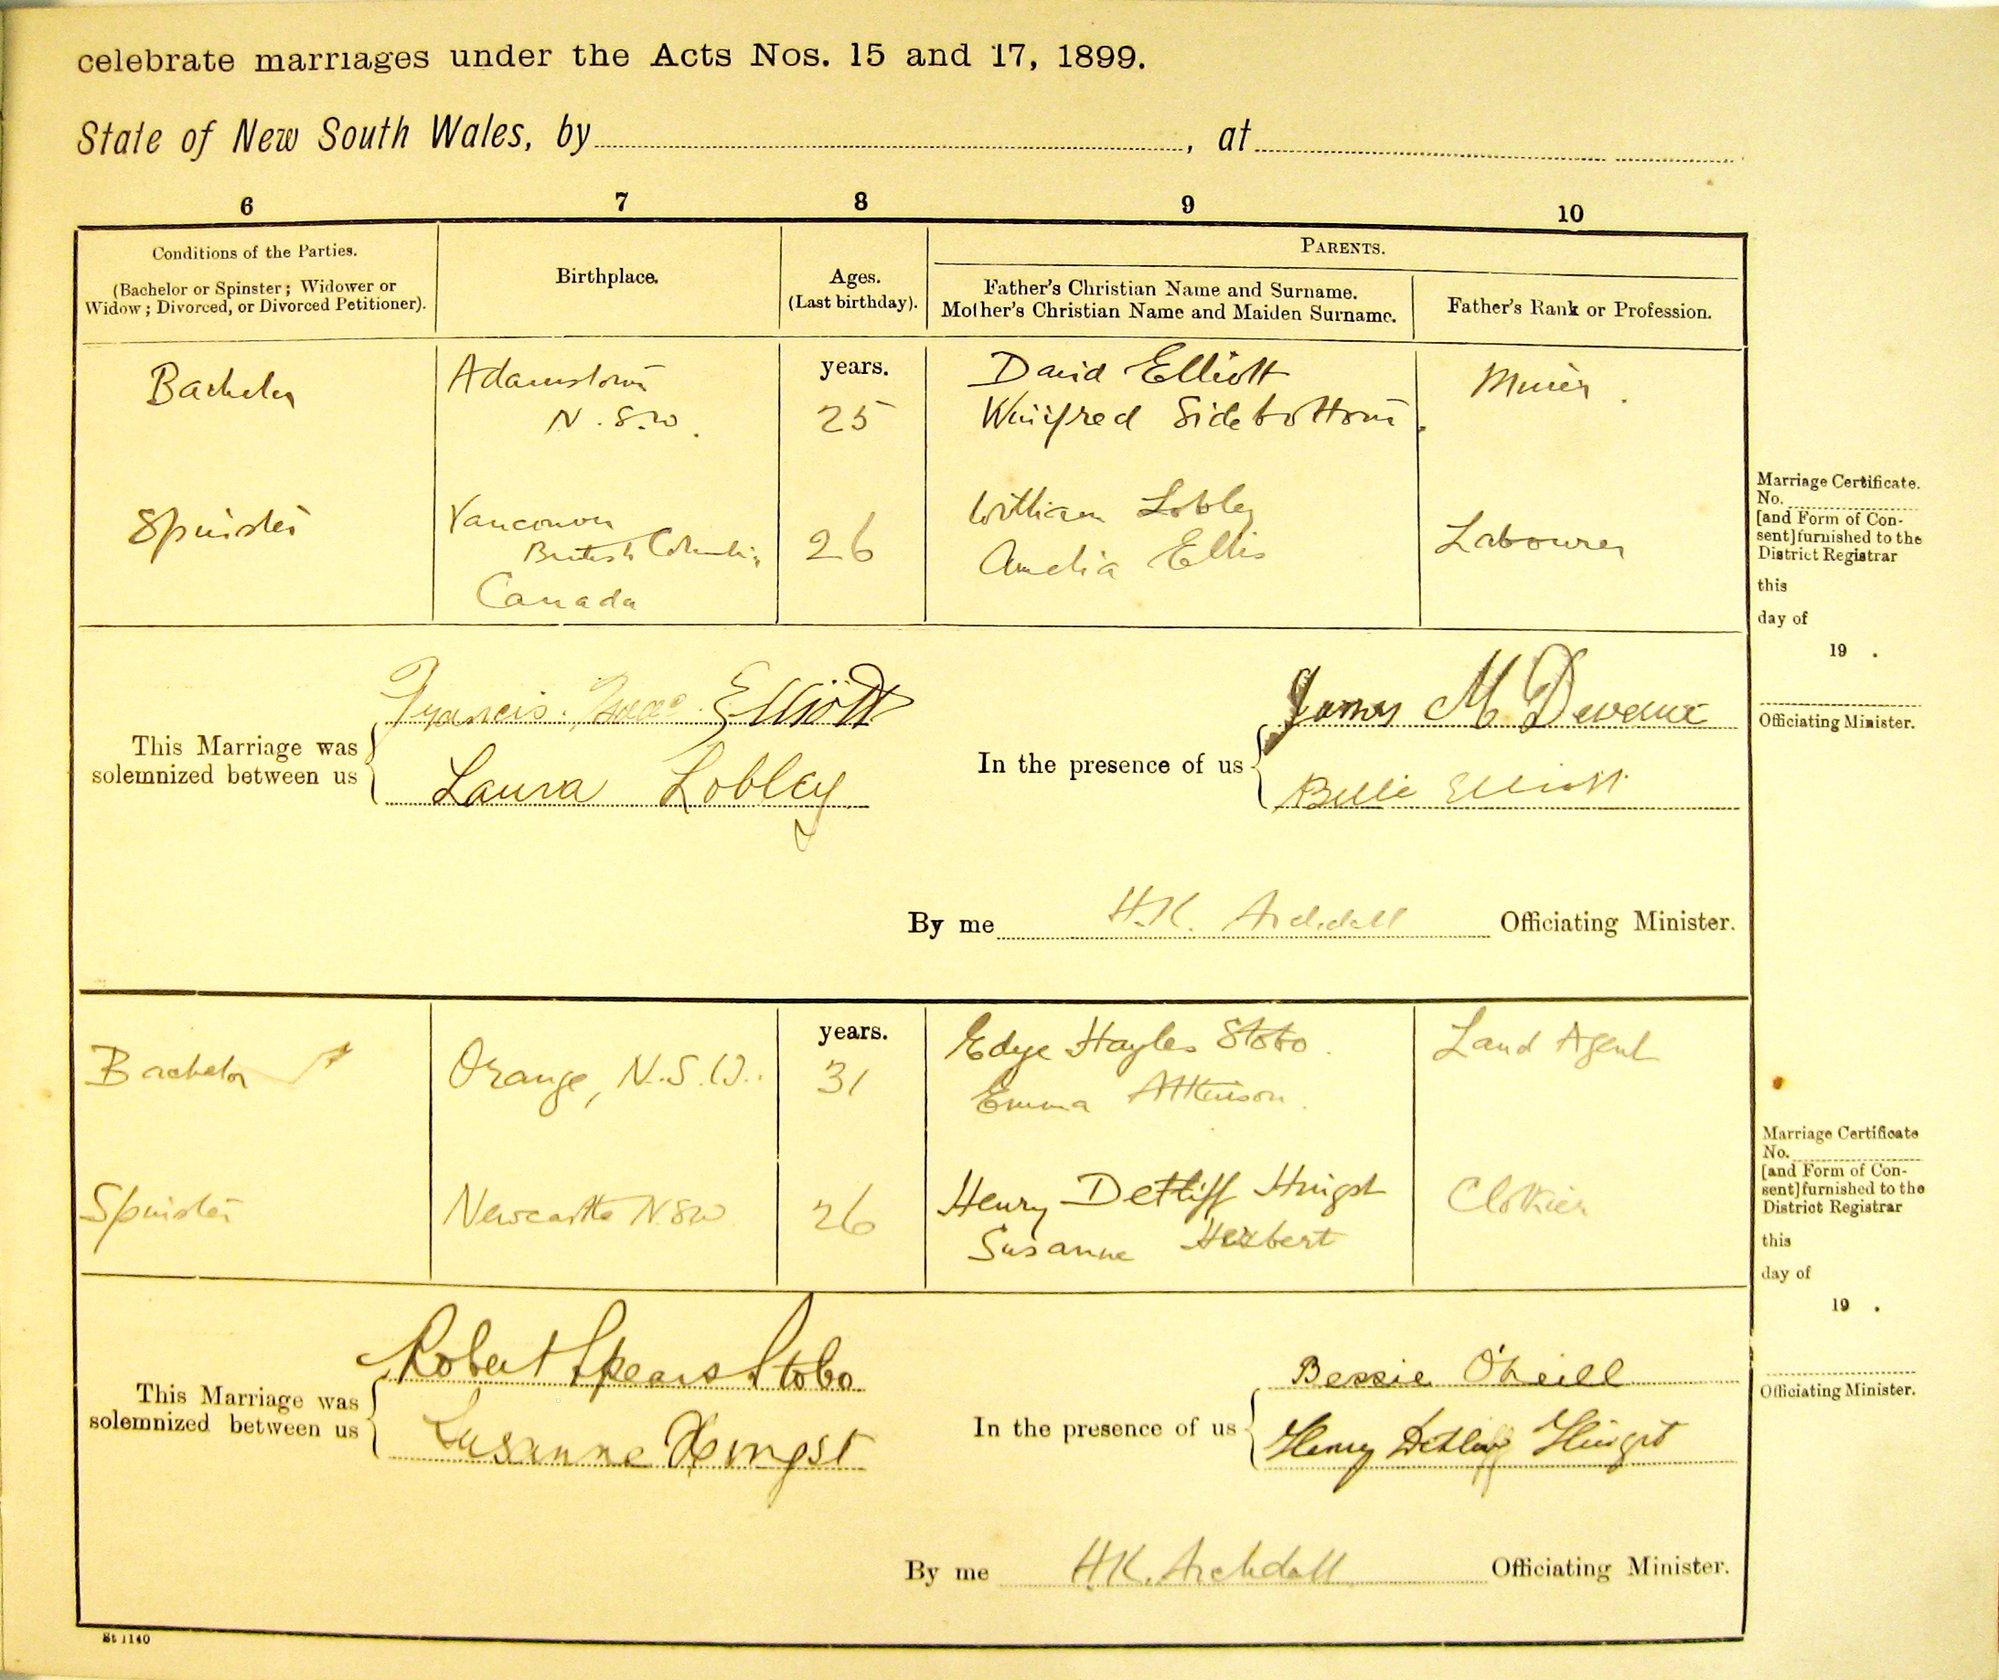 celebrate marriages under the Acts Nos. 15 and 17, 1899.
State of New South Wales, by , at
6 7 8 9 10
Conditions of the Parties.
(Bachelor or Spinster; Widower or
Widow; Divorced, or Divorced Petitioner).
Birthplace.
Ages.
(Last birthday).
PARENTS.
Father's Christian Name and Surname.
Mother's Christian Name and Maiden Surname.
Father's Rank or Profession.
Bachelor
Adamstown
N.S.W.
years.
25
David Elliott
Winifred Sidebottom
Miner.
Spinster
Vancouver
British Columbia
Canada
26
William Lobley
Amelia Ellis
Labourer
Marriage Certificate.
No.
[and Form of Con-
sent] furnished to the
District Registrar
this
day of
19 .
Officiating Minister.
This Marriage was
solemnized between us
Francis Elliott
Laura Lobley
In the presence of us
James M Deveaux
Belle Elliott
By me H.K. Archdall Officiating Minister.
Bachelor
Orange, N.S.W.
years.
31
Edye Hayles Stobo.
Emma Atkinson.
Land Agent
Spinster
Newcastle NSW
26
Henry Detliff Hingst
Susanne Herbert
Clothier
Marriage Certificate
No.
[and Form of Con-
sent] furnished to the
District Registrar
this
day of
19 .
Officiating Minister.
This Marriage was
solemnized between us
Robert Spears Stobo
Susanne Hingst
In the presence of us
Bessie O'Neill
Henry Detleff Hingst
By me H.K. Archdall Officiating Minister.
St 1140